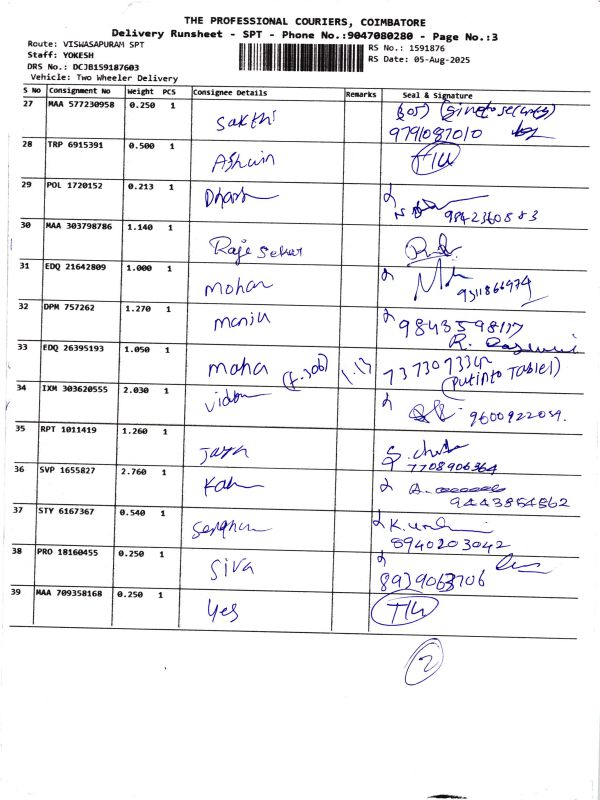 THE PROFESSIONAL COURIERS, COIMBATORE
Delivery Runsheet - SPT - Phone No.:9047080280 - Page No.:3
Route: VISWASAPURAM SPT
RS No.: 1591876
Staff: YOKESH
RS Date: 05-Aug-2025
DRS No.: DCJB159187603
Vehicle: Two Wheeler Delivery
S No Consignment No Weight PCS Consignee Details Remarks Seal & Signature
27 MAA 577230958 0.250 1 Sakthi
9791087010
28 TRP 6915391 0.500 1 Ashwin
29 POL 1720152 0.213 1
9842360883
30 MAA 303798786 1.140 1 Raje Sekar
31 EDQ 21642809 1.000 1 Mohan
9311866974
32 DPM 757262 1.270 1 manju
33 EDQ 26395193 1.050 1 maha
(put into Table)
34 IXM 303620555 2.030 1
9600922059.
35 RPT 1011419 1.260 1 Jaya
7708906364
36 SVP 1655827 2.760 1
9443854562
37 STY 6167367 0.540 1
8940203042
38 PRO 18160455 0.250 1 Siva
8939063706
39 MAA 709358168 0.250 1 Yes
2